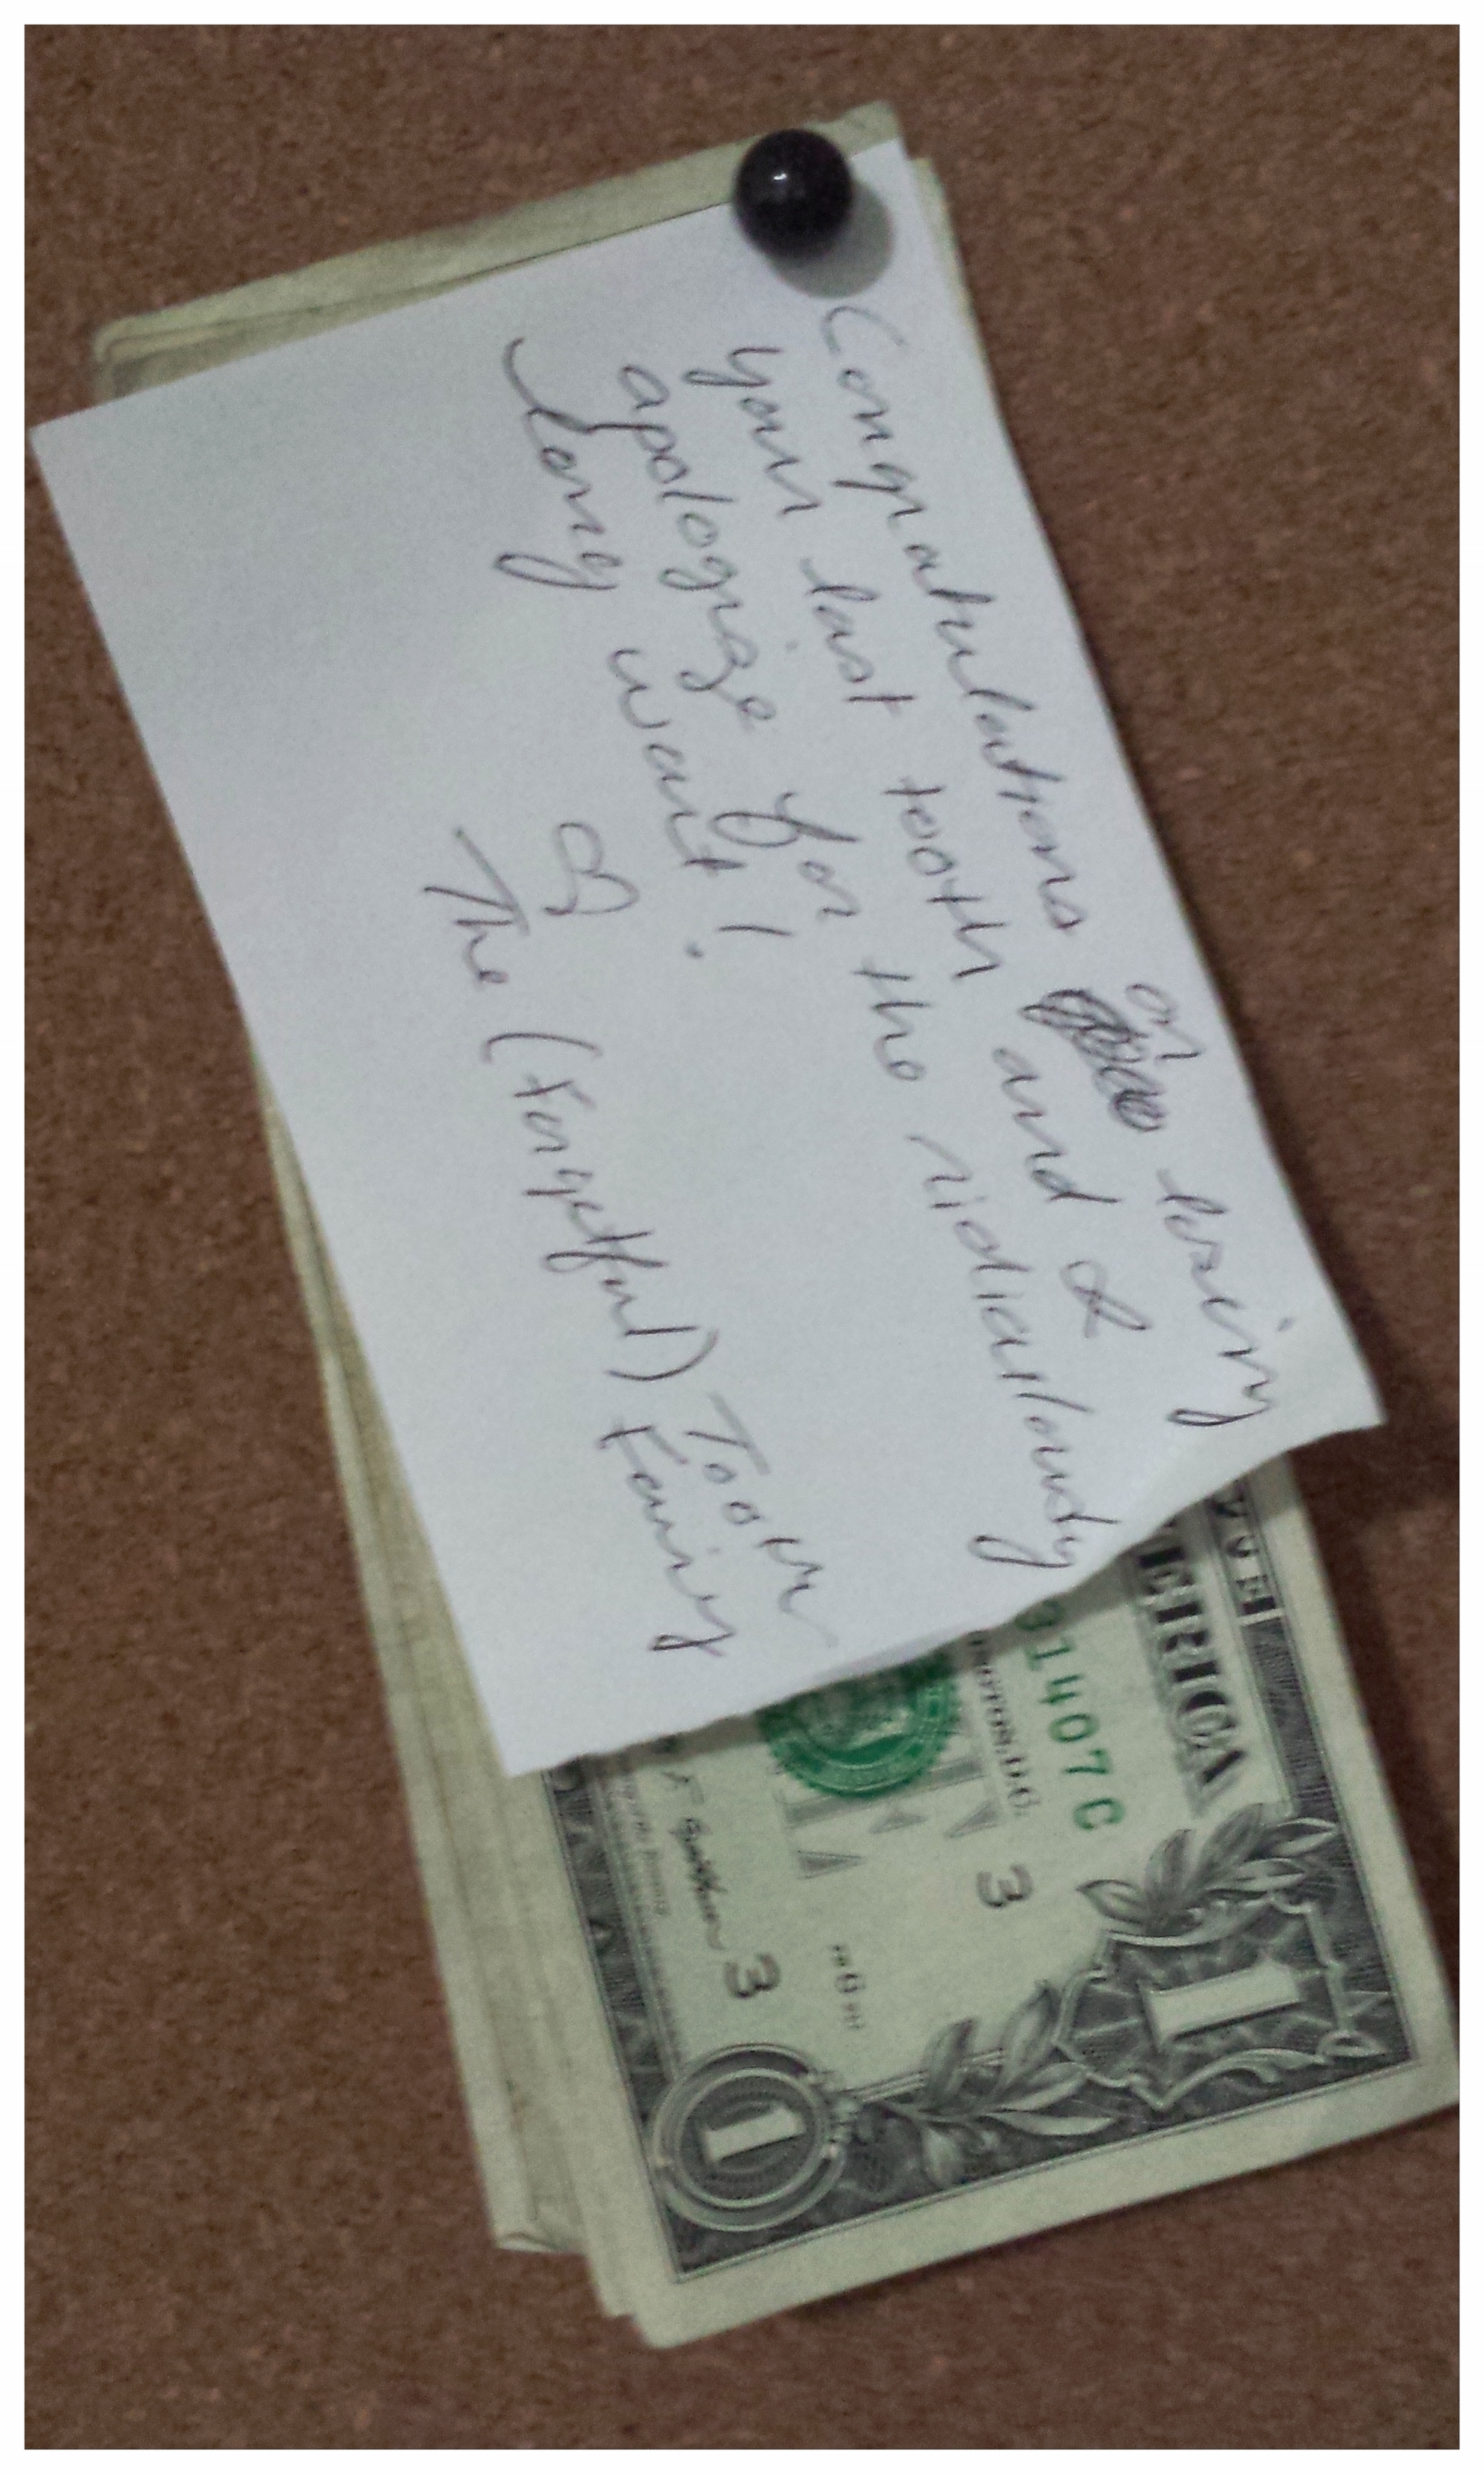 Congratulations on losing
your last tooth and I
apologize for the ridiculously
long wait!
The (Forgetful) Tooth
Fairy
ERICA
91407C
3
3
1
1